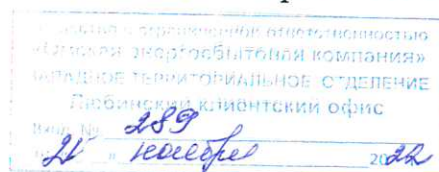 Общество с ограниченной ответственностью
«Омская энергосбытовая компания»
ЗАПАДНОЕ ТЕРРИТОРИАЛЬНОЕ ОТДЕЛЕНИЕ
Любинский клиентский офис
Вход. № 289
21 " ноября 2022